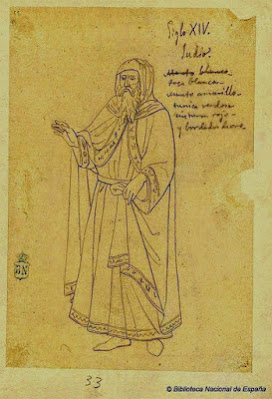 Siglo XIV.
Judio.
Manto blanco
toca blanca
manto amarillo
tunica verdosa
rojo
y bordados de oro
BN
33
© Biblioteca Nacional de España